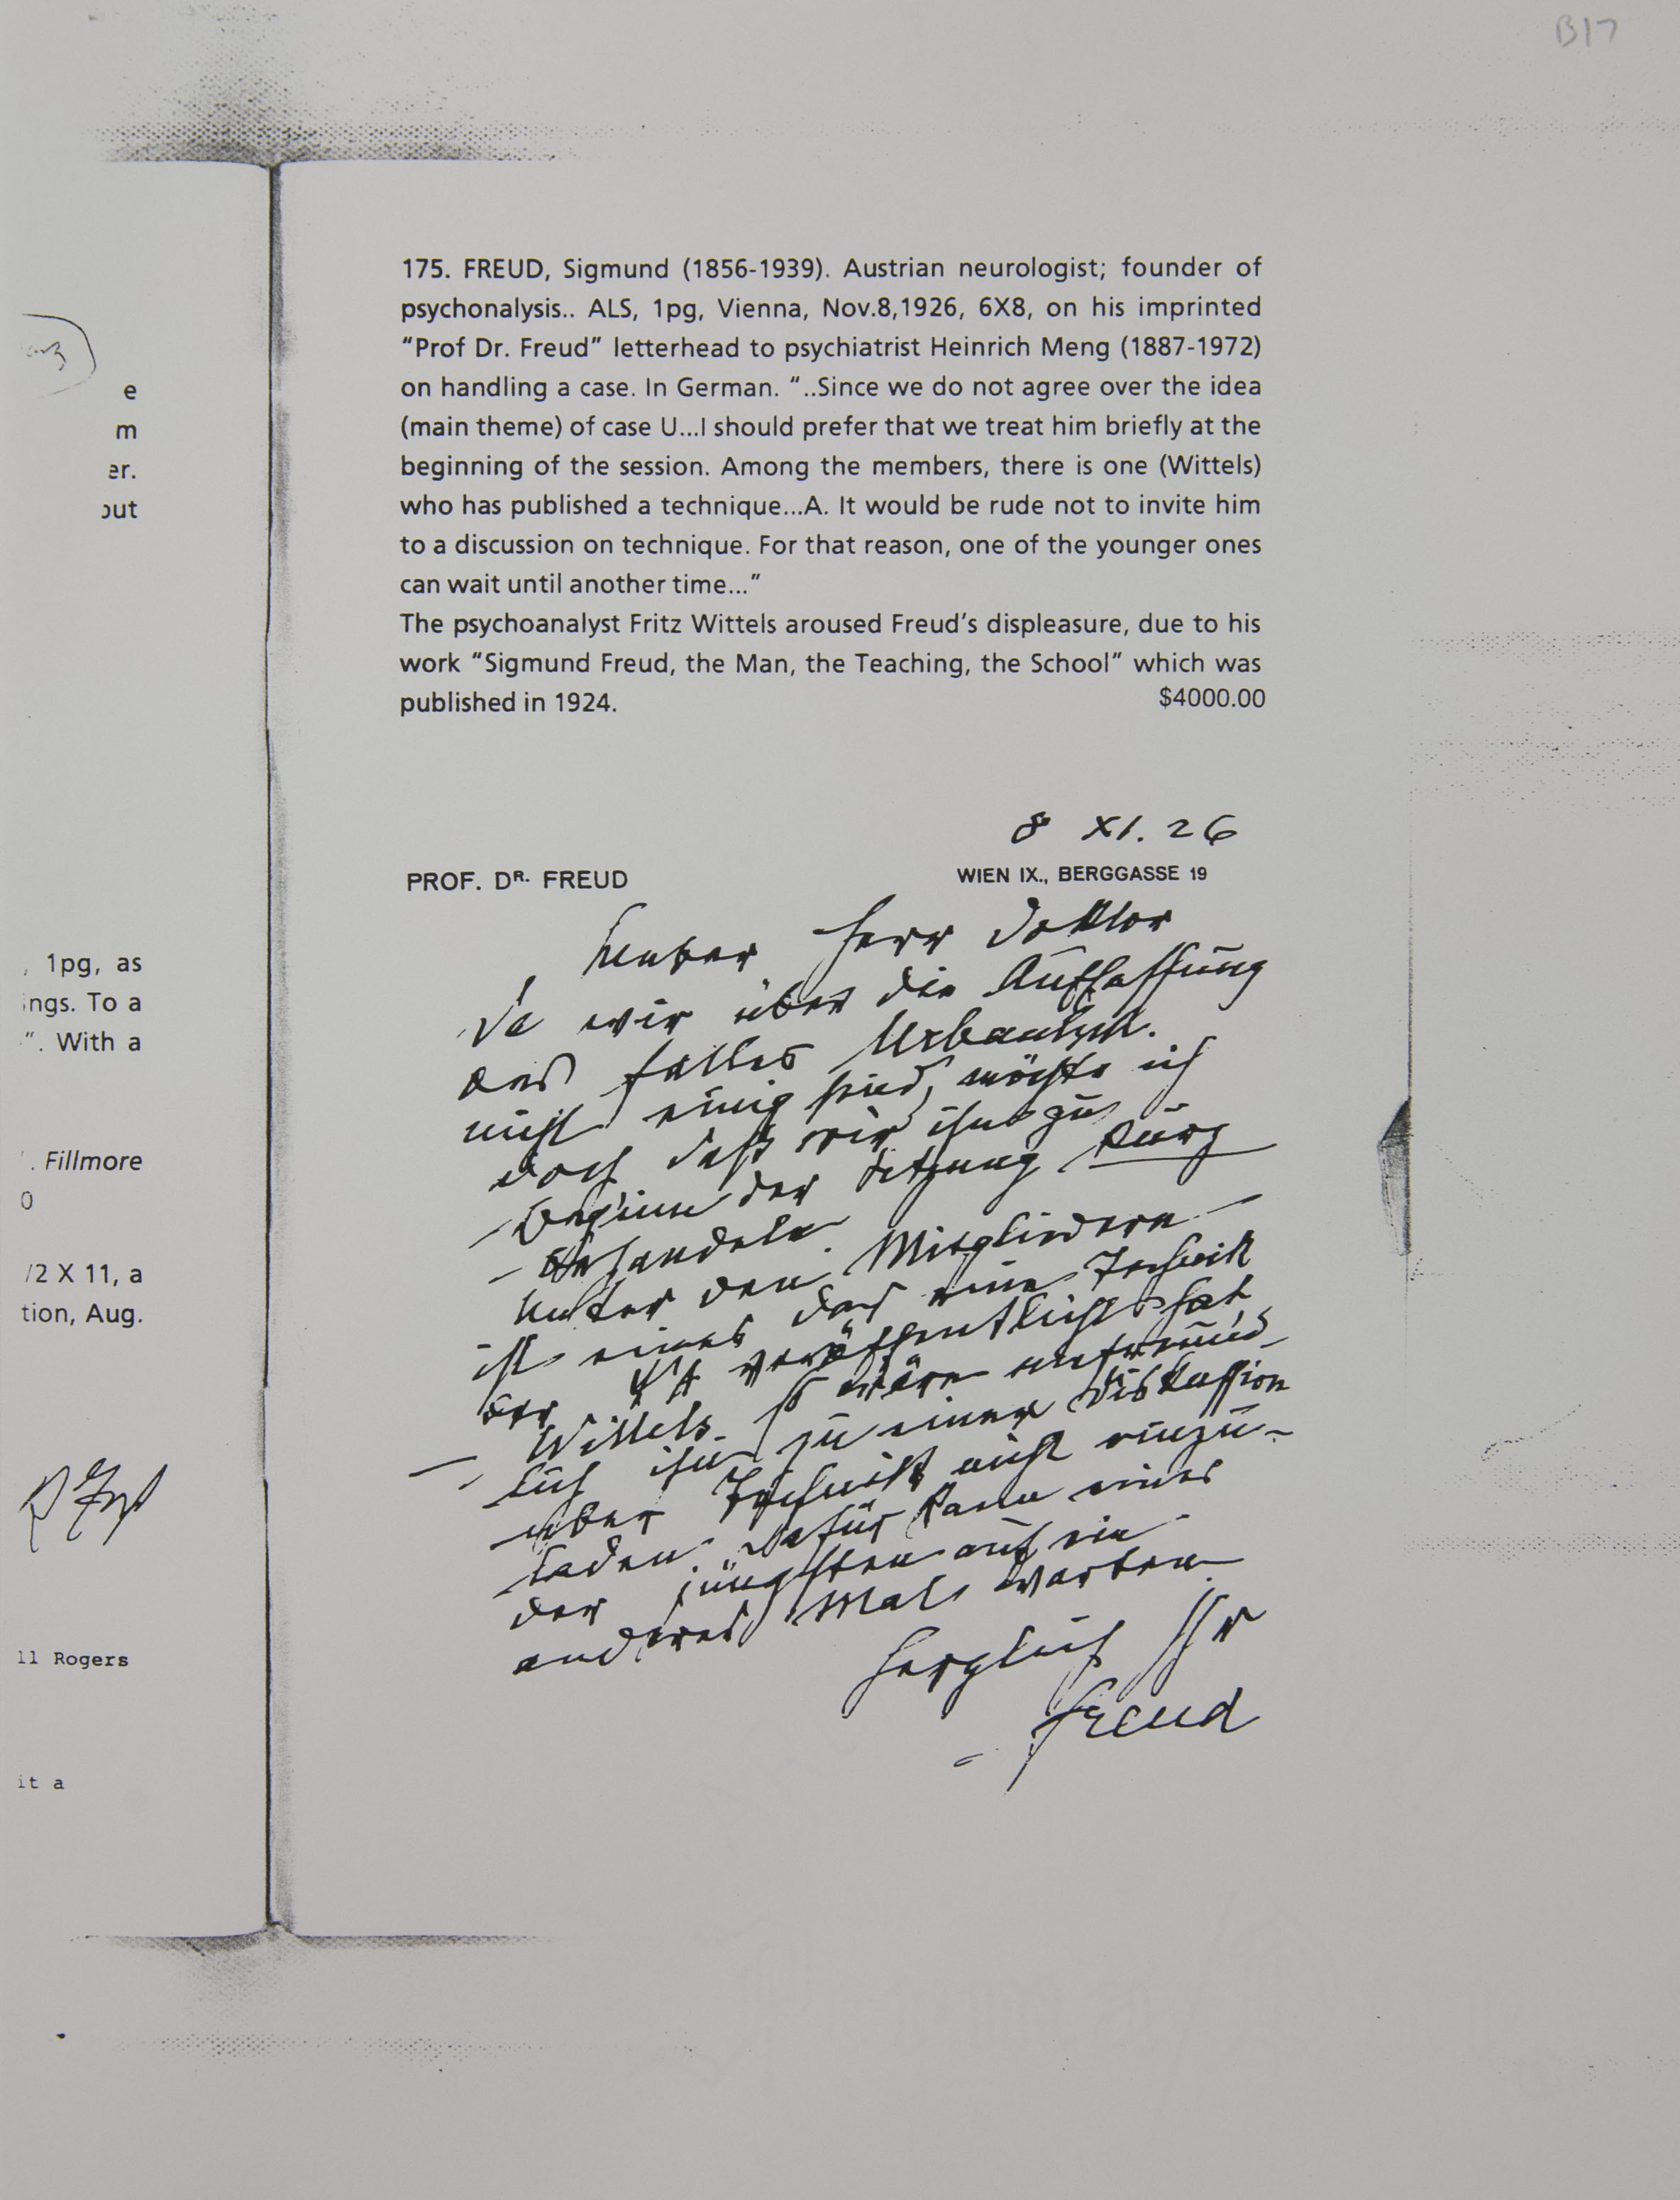 B17
e
m
er.
out
, 1pg, as
ings. To a
". With a
. Fillmore
0
/2 X 11, a
tion, Aug.
ll Rogers
it a
175. FREUD, Sigmund (1856-1939). Austrian neurologist; founder of
psychonalysis.. ALS, 1pg, Vienna, Nov.8,1926, 6X8, on his imprinted
“Prof Dr. Freud” letterhead to psychiatrist Heinrich Meng (1887-1972)
on handling a case. In German. “..Since we do not agree over the idea
(main theme) of case U...I should prefer that we treat him briefly at the
beginning of the session. Among the members, there is one (Wittels)
who has published a technique...A. It would be rude not to invite him
to a discussion on technique. For that reason, one of the younger ones
can wait until another time...”
The psychoanalyst Fritz Wittels aroused Freud’s displeasure, due to his
work “Sigmund Freud, the Man, the Teaching, the School” which was
published in 1924. $4000.00
8 XI. 26
PROF. DR. FREUD WIEN IX., BERGGASSE 19
Herr Doktor
Da wir über die Auffassung
des Falles
nicht einig sind, möchte ich
doch daß wir ihn zu
Beginn der Sitzung kurz
behandeln.
Unter den Mitgliedern
ist eines das eine Technik
der ΨA veröffentlicht hat,
Wittels. Es wäre unfreund-
lich ihn zu einer Diskussion
über Technik nicht einzu-
laden. Dafür kann eines
der jüngsten auf ein
anderes Mal warten.
Herzlich Ihr
Freud